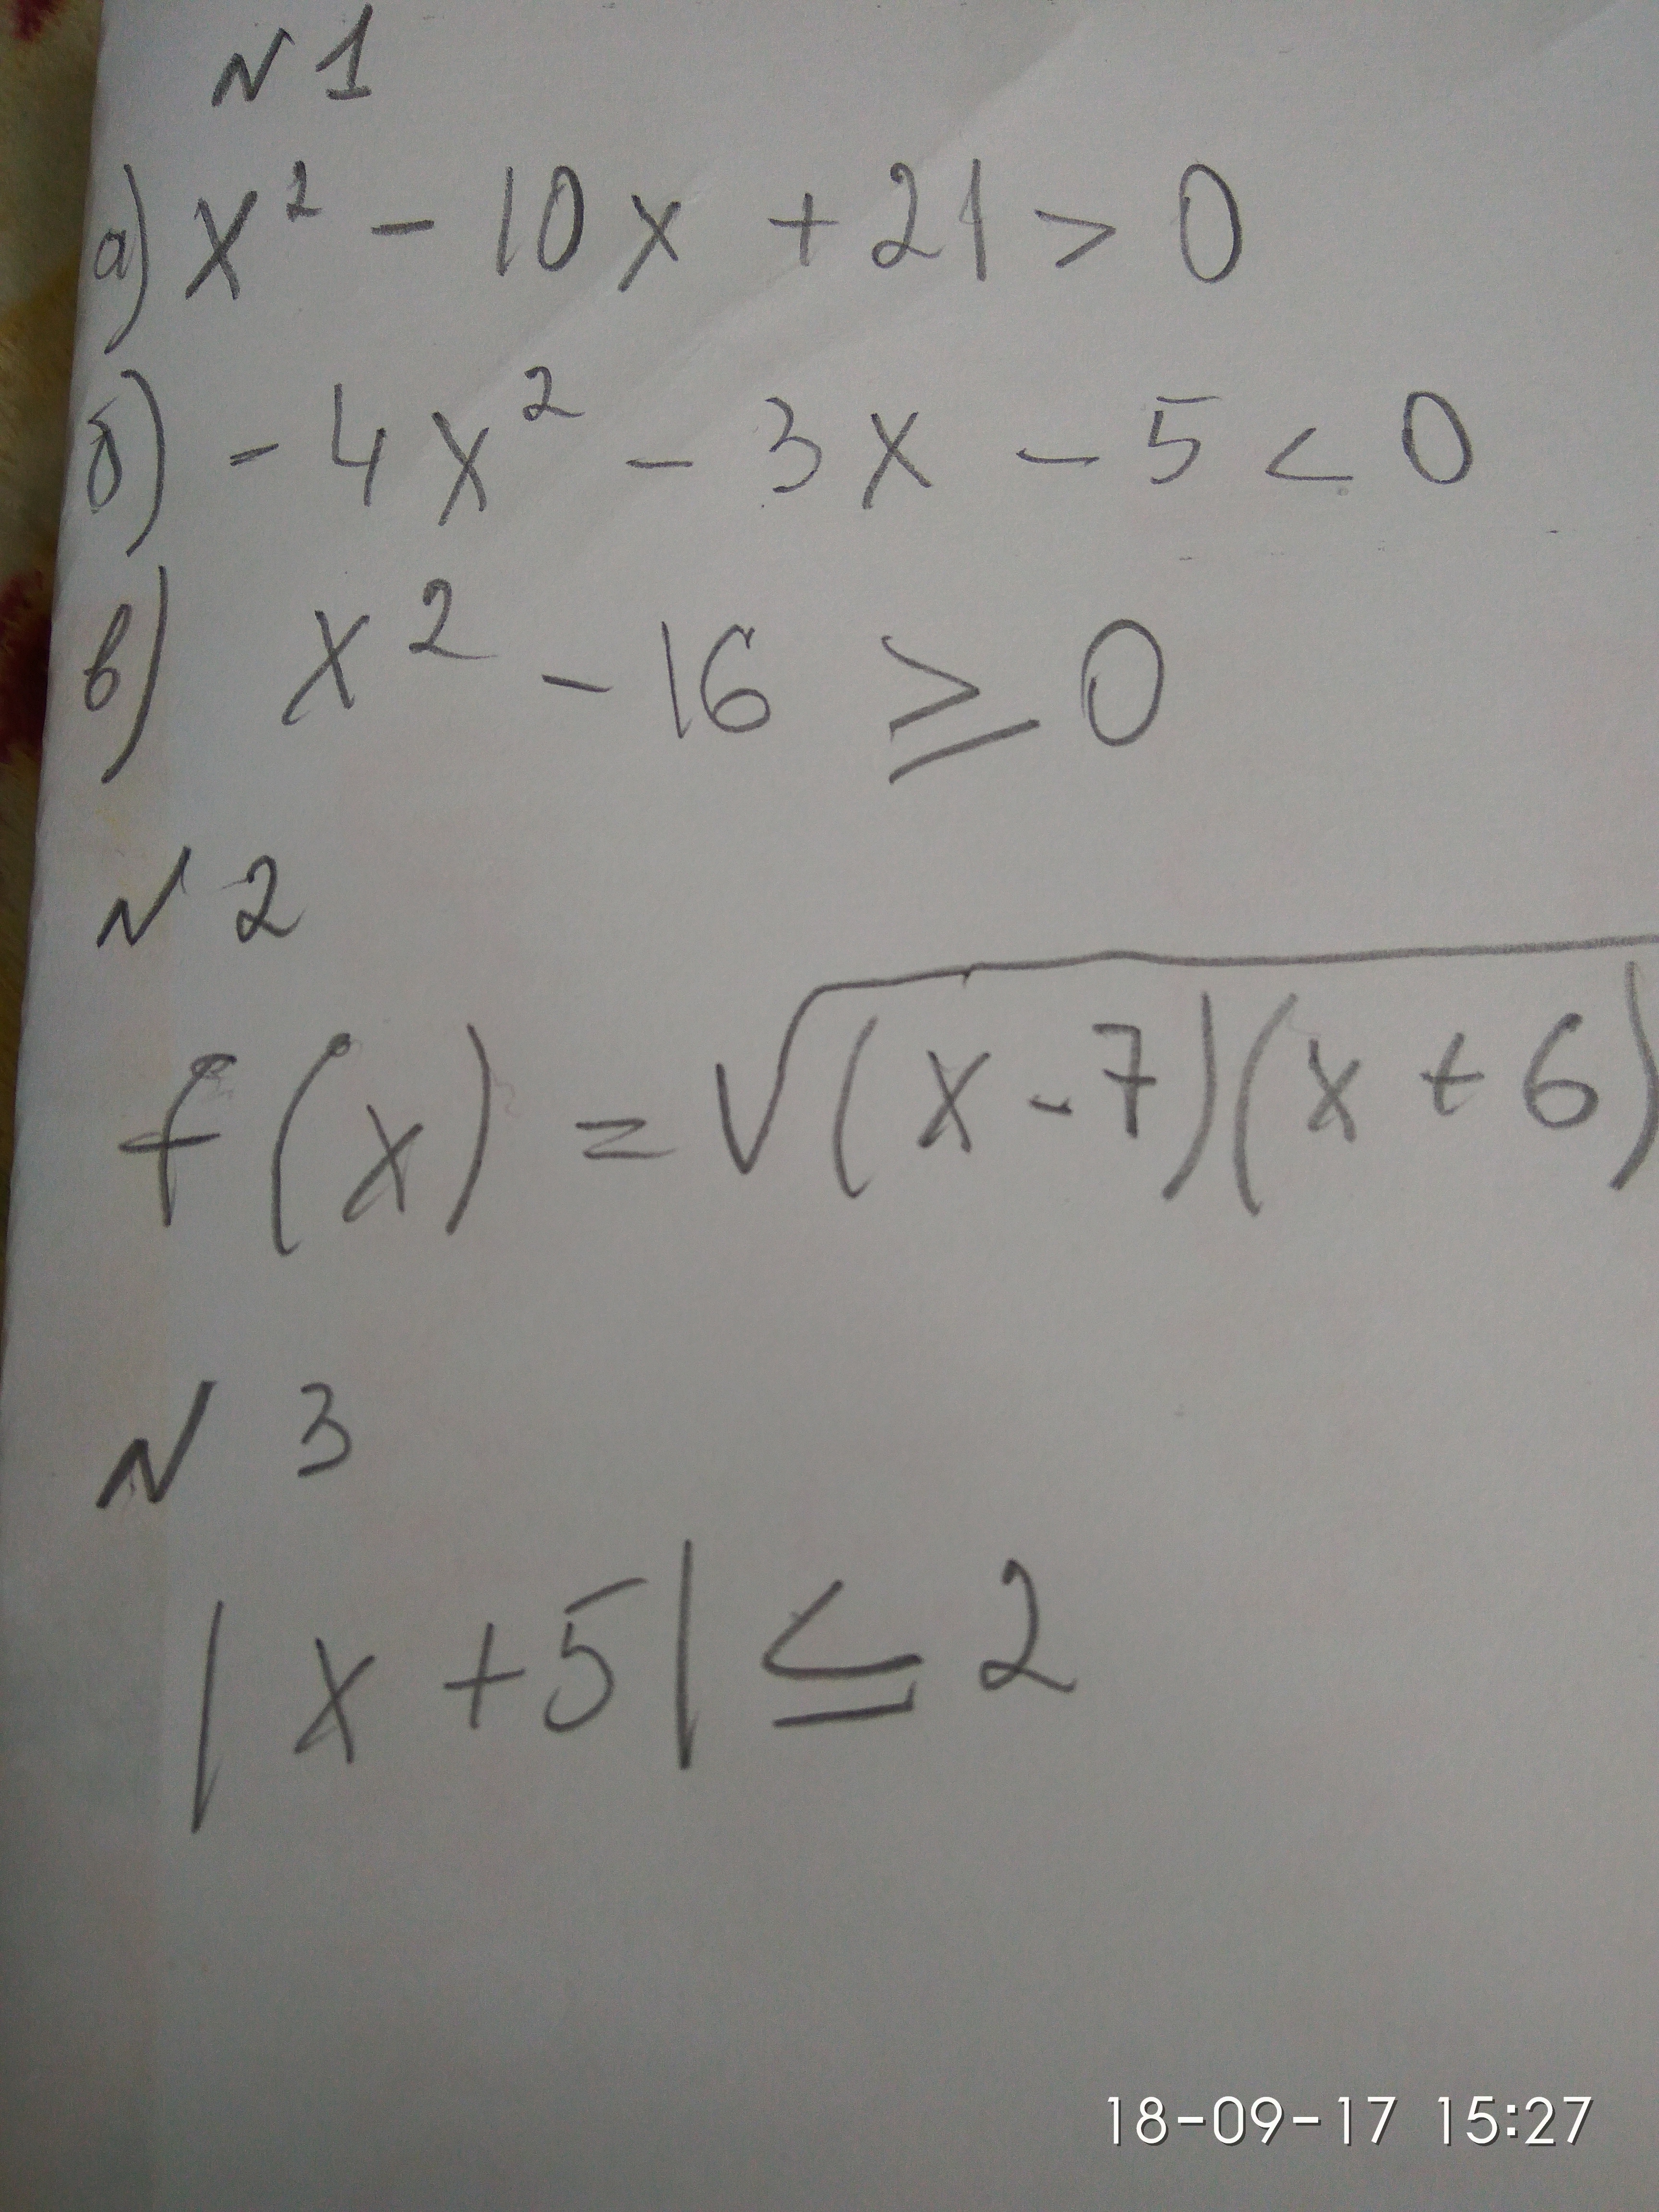 N 1
а) x² - 10x + 21 > 0
б) - 4x² - 3x - 5 < 0
в) x² - 16 ≥ 0
N 2
f(x) = √(x-7)(x+6)
N 3
|x+5| ≤ 2
18-09-17 15:27